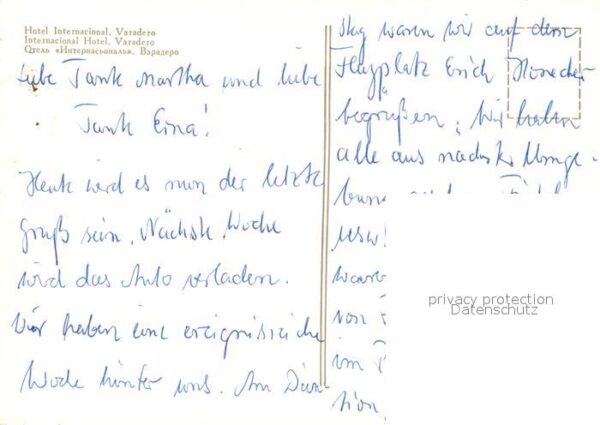 Hotel Internacional. Varadero
International Hotel. Varadero
Отель «Интернасьональ». Варадеро
Liebe Tante Martha und liebe
Tante Erna!
Heute wird es nun der letzte
Gruß sein. Nächste Woche
wird das Auto verladen.
Wir haben eine ereignisreiche
Woche hinter uns. Am Diens-
tag waren wir auf dem
Flugplatz Erich Honecker
begrüßen. Wir haben
alle aus nächster Umge-
bung
usw!
von
im
tion.
privacy protection
Datenschutz